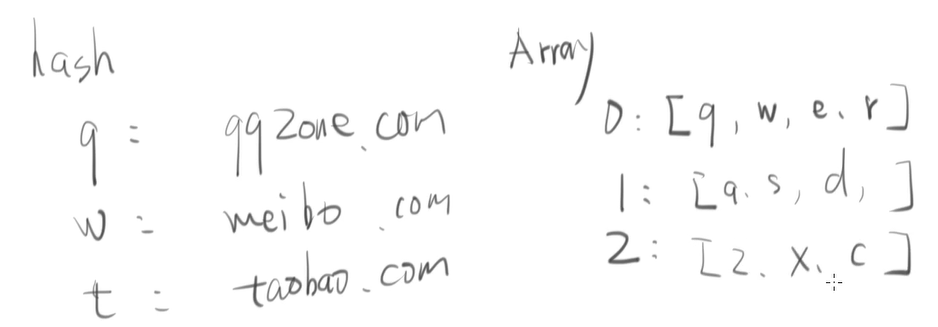 hash
q = qqzone.com
w = meibo.com
t = taobao.com
Array
0: [q, w, e, r]
1: [a, s, d, ]
2: [z, x, c]